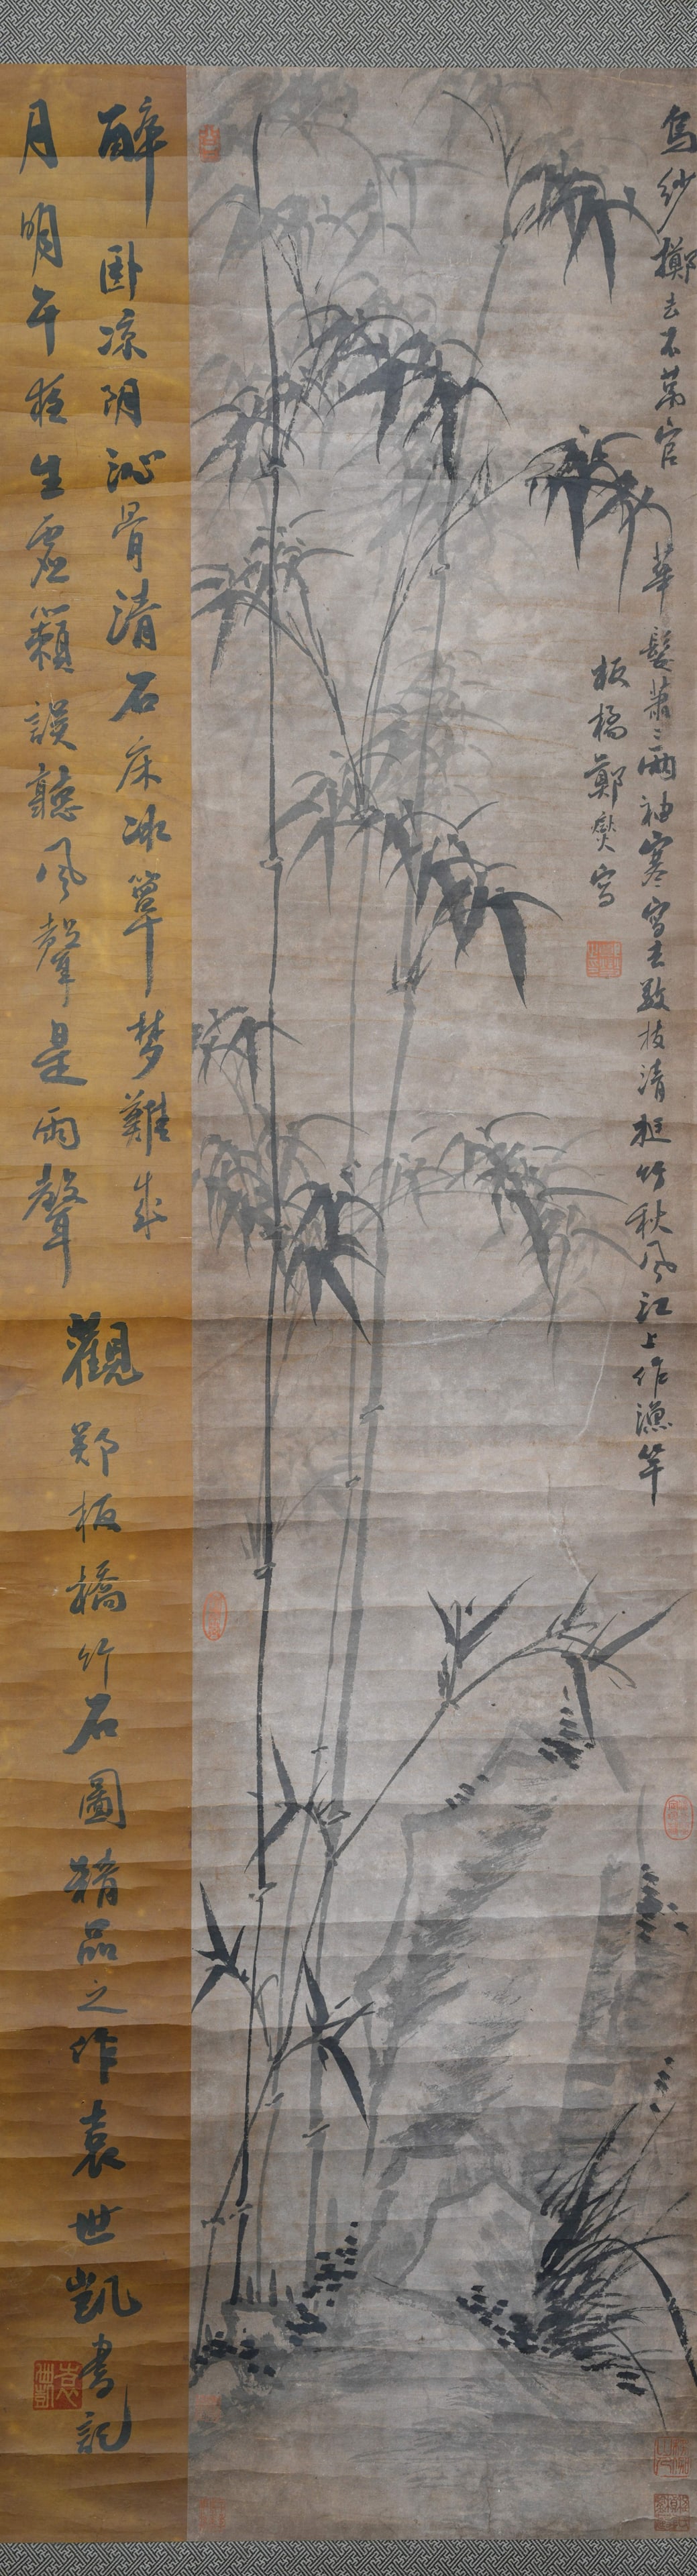 烏紗擲去不為官
華髮蕭〻兩袖寒寫去數枝清挺竹秋風江上作漁竿
板橋鄭燮寫
醉卧凉阴沁骨清石床冰簟梦難成
月明午夜生虛籟誤聽风聲是雨聲
觀郑板橋竹石圖精品之作袁世凱書記